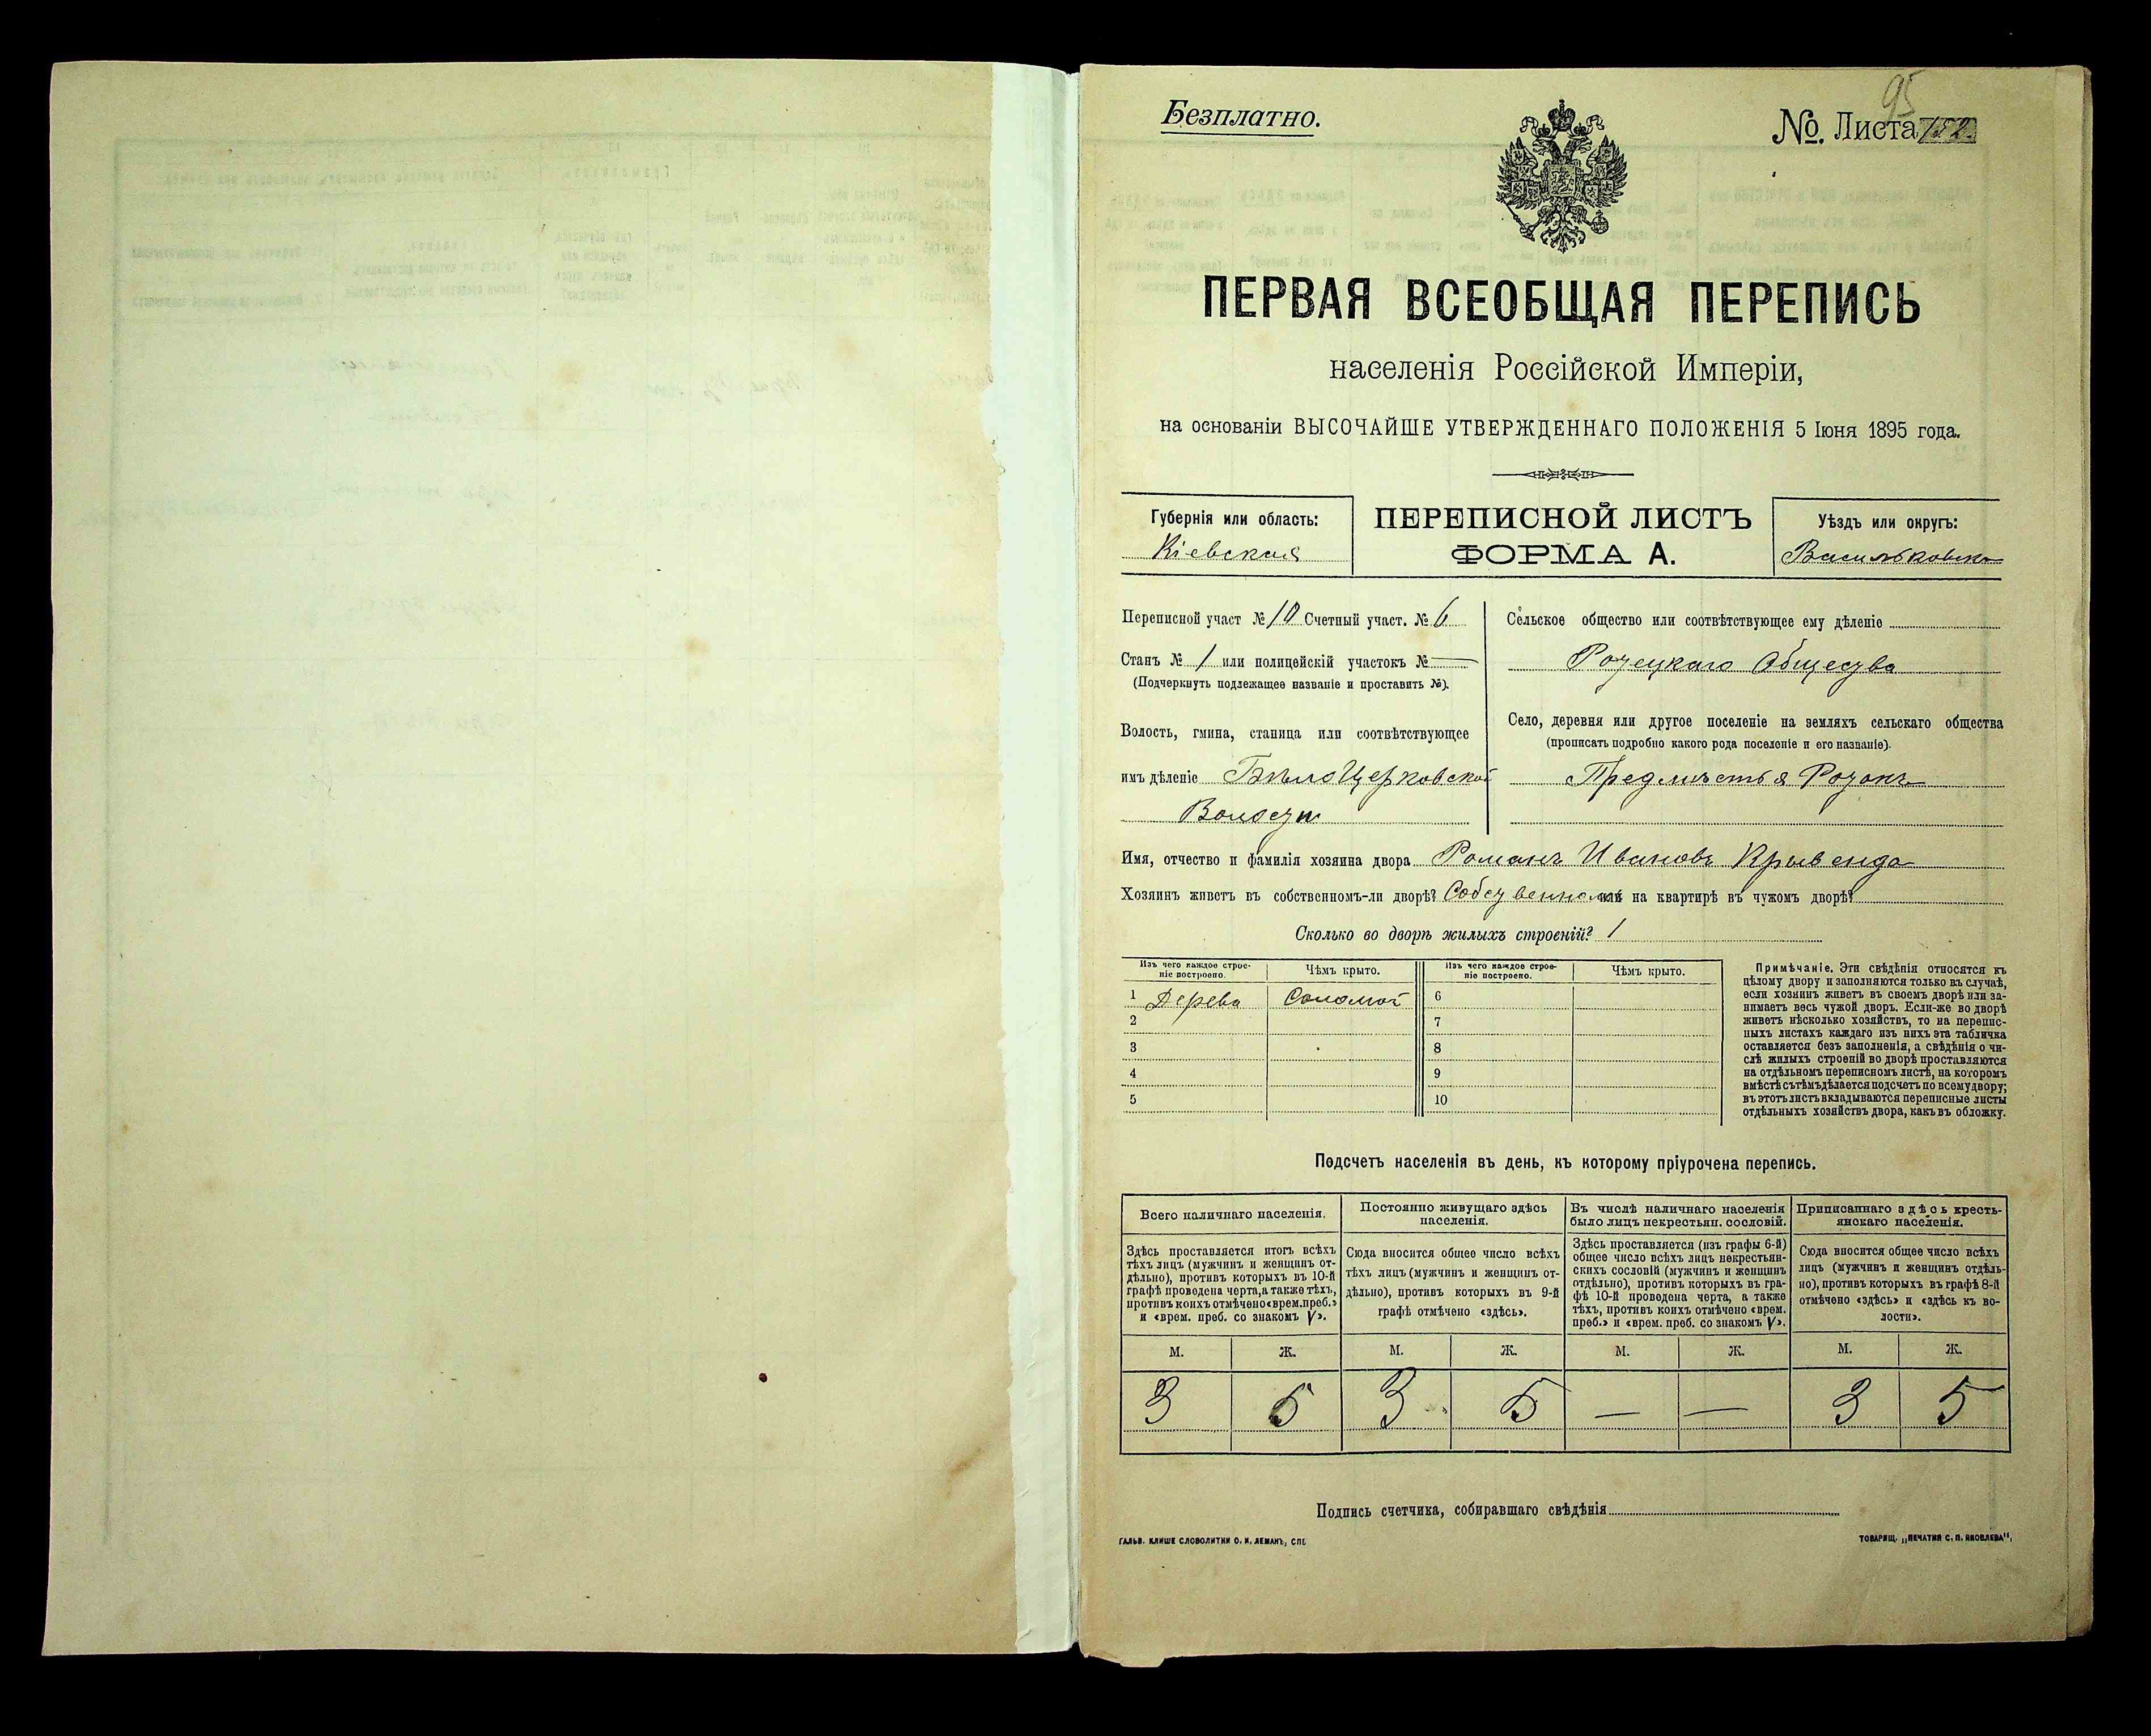 95
Безплатно.
№. Листа 152.
ПЕРВАЯ ВСЕОБЩАЯ ПЕРЕПИСЬ
населенія Россійской Имперіи,
на основаніи ВЫСОЧАЙШЕ УТВЕРЖДЕННАГО ПОЛОЖЕНІЯ 5 Іюня 1895 года.
Губернія или область:
Кіевская
ПЕРЕПИСНОЙ ЛИСТЪ
ФОРМА А.
Уѣздъ или округъ:
Васильковск
Переписной участ № 10 Счетный участ. № 6
Станъ № 1 или полицейскій участокъ № —
(Подчеркнуть подлежащее названіе и проставить №).
Волость, гмина, станица или соотвѣтствующее
имъ дѣленіе Бѣлоцерковской
Волости
Сельское общество или соотвѣтствующее ему дѣленіе
Ротецкаго Общества
Село, деревня или другое поселеніе на земляхъ сельскаго общества
(прописать подробно какого рода поселеніе и его названіе).
Предмѣстья Ротокъ
Имя, отчество и фамилія хозяина двора Романъ Ивановъ Крывенда
Хозяинъ живетъ въ собственномъ-ли дворѣ? Собственномъ или на квартирѣ въ чужомъ дворѣ?
Сколько во дворѣ жилыхъ строеній? 1
Изъ чего каждое строеніе построено. Чѣмъ крыто. Изъ чего каждое строеніе построено. Чѣмъ крыто.
1 Дерева Соломой 6
2 7
3 8
4 9
5 10
Примѣчаніе. Эти свѣдѣнія относятся къ
цѣлому двору и заполняются только въ случаѣ,
если хозяинъ живетъ въ своемъ дворѣ или за-
нимаетъ весь чужой дворъ. Если-же во дворѣ
живетъ нѣсколько хозяйствъ, то на перепис-
ныхъ листахъ каждаго изъ нихъ эта табличка
оставляется безъ заполненія, а свѣдѣнія о чи-
слѣ жилыхъ строеній во дворѣ проставляются
на отдѣльномъ переписномъ листѣ, на которомъ
вмѣстѣ съ тѣмъ дѣлается подсчетъ по всему двору;
въ этотъ листъ вкладываются переписные листы
отдѣльныхъ хозяйствъ двора, какъ въ обложку.
Подсчетъ населенія въ день, къ которому пріурочена перепись.
Всего наличнаго населенія.
Здѣсь проставляется итогъ всѣхъ
тѣхъ лицъ (мужчинъ и женщинъ от-
дѣльно), противъ которыхъ въ 10-й
графѣ проведена черта, а также тѣхъ,
противъ коихъ отмѣчено «врем. преб.»
и «врем. преб. со знакомъ V».
Постоянно живущаго здѣсь
населенія.
Сюда вносится общее число всѣхъ
тѣхъ лицъ (мужчинъ и женщинъ от-
дѣльно), противъ которыхъ въ 9-й
графѣ отмѣчено «здѣсь».
Въ числѣ наличнаго населенія
было лицъ некрестьян. сословій.
Здѣсь проставляется (изъ графы 6-й)
общее число всѣхъ лицъ некрестьян-
скихъ сословій (мужчинъ и женщинъ
отдѣльно), противъ которыхъ въ гра-
фѣ 10-й проведена черта, а также
тѣхъ, противъ коихъ отмѣчено «врем.
преб.» и «врем. преб. со знакомъ V».
Приписаннаго здѣсь кресть-
янскаго населенія.
Сюда вносится общее число всѣхъ
лицъ (мужчинъ и женщинъ отдѣль-
но), противъ которыхъ въ графѣ 8-й
отмѣчено «здѣсь» и «здѣсь къ во-
лости».
М. Ж. М. Ж. М. Ж. М. Ж.
3 5 3 5 — — 3 5
Подпись счетчика, собиравшаго свѣдѣнія
ГАЛЬВ. КЛИШЕ СЛОВОЛИТНИ О. И. ЛЕМАНЪ, СПБ
ТОВАРИЩ. „ПЕЧАТНЯ С. П. ЯКОВЛЕВА".